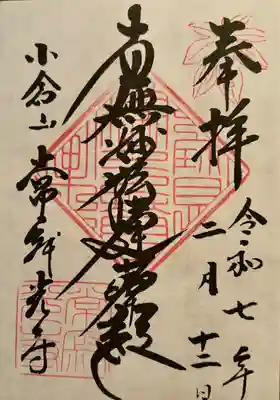 奉拝
令和七年
二月十二日
南無妙法蓮華経
小倉山
常寂光寺